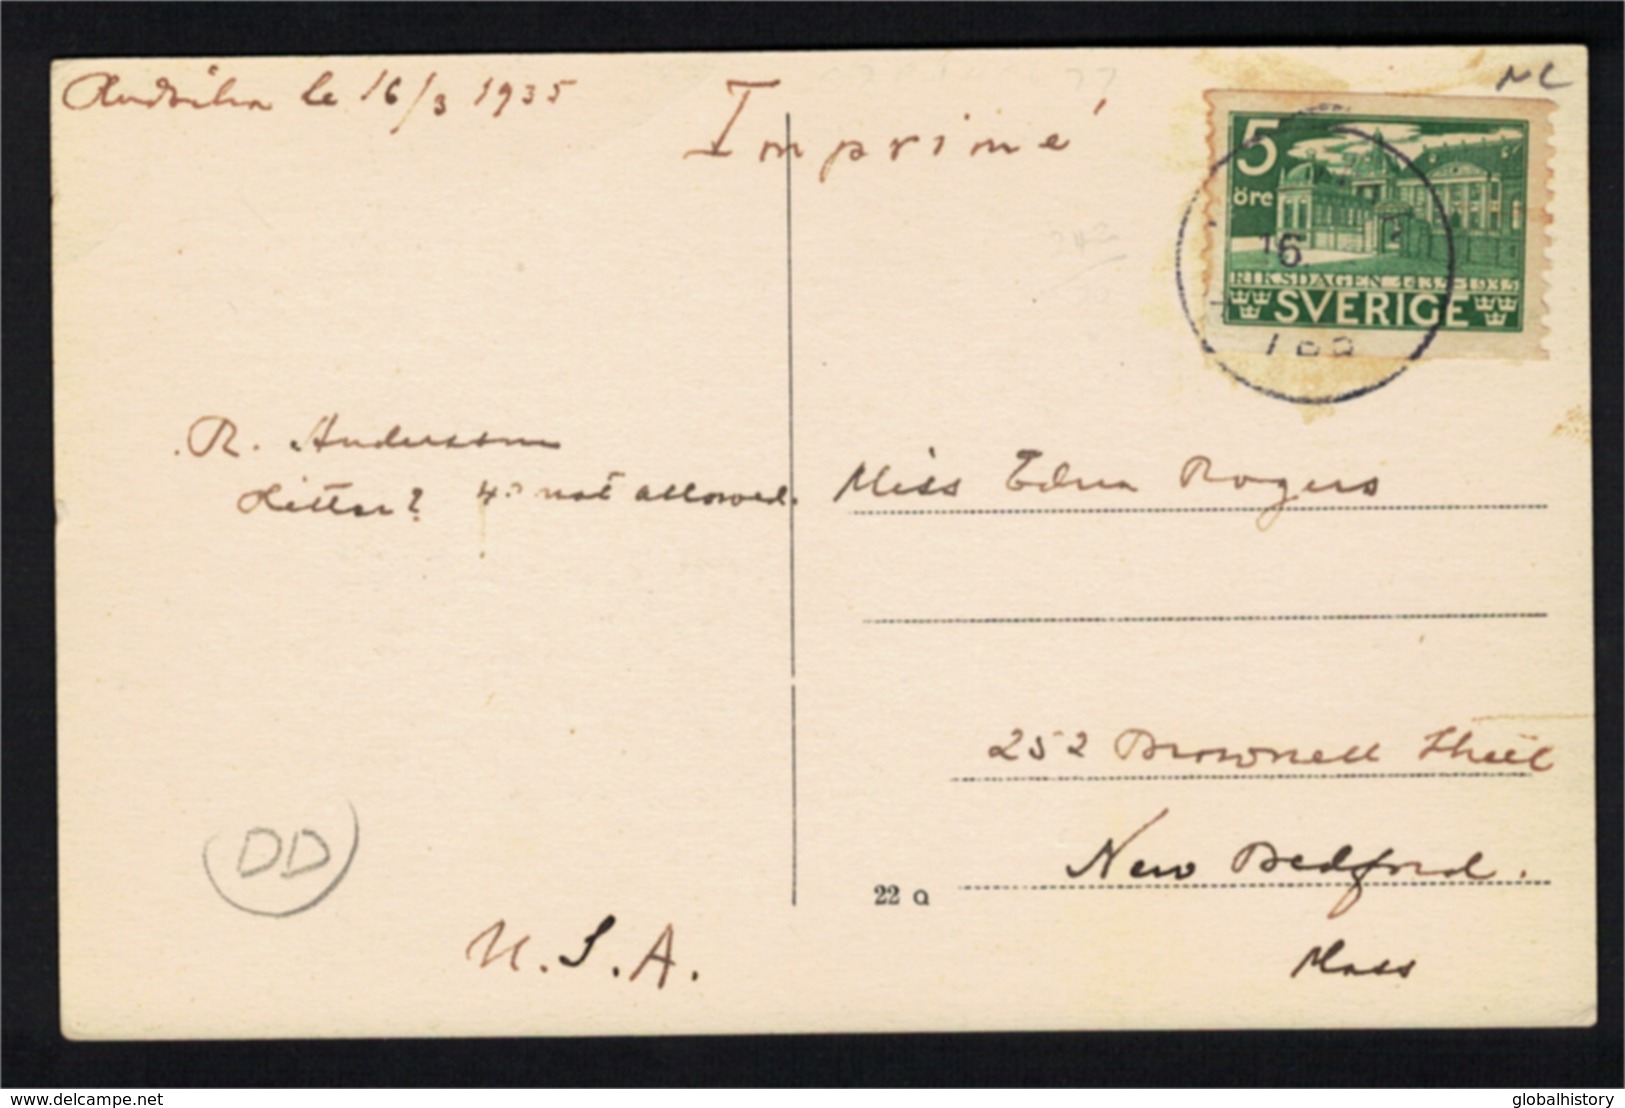 le 16/3 1935
Imprimé
NC
5
öre
16.
RIKSDAGEN 1435-1935
SVERIGE
R. Andersson
Letter? not allowed.
Miss Edna Rogers
252 Brownell Street
New Bedford.
Mass
22 a
DD
U.S.A.
www.delcampe.net
globalhistory